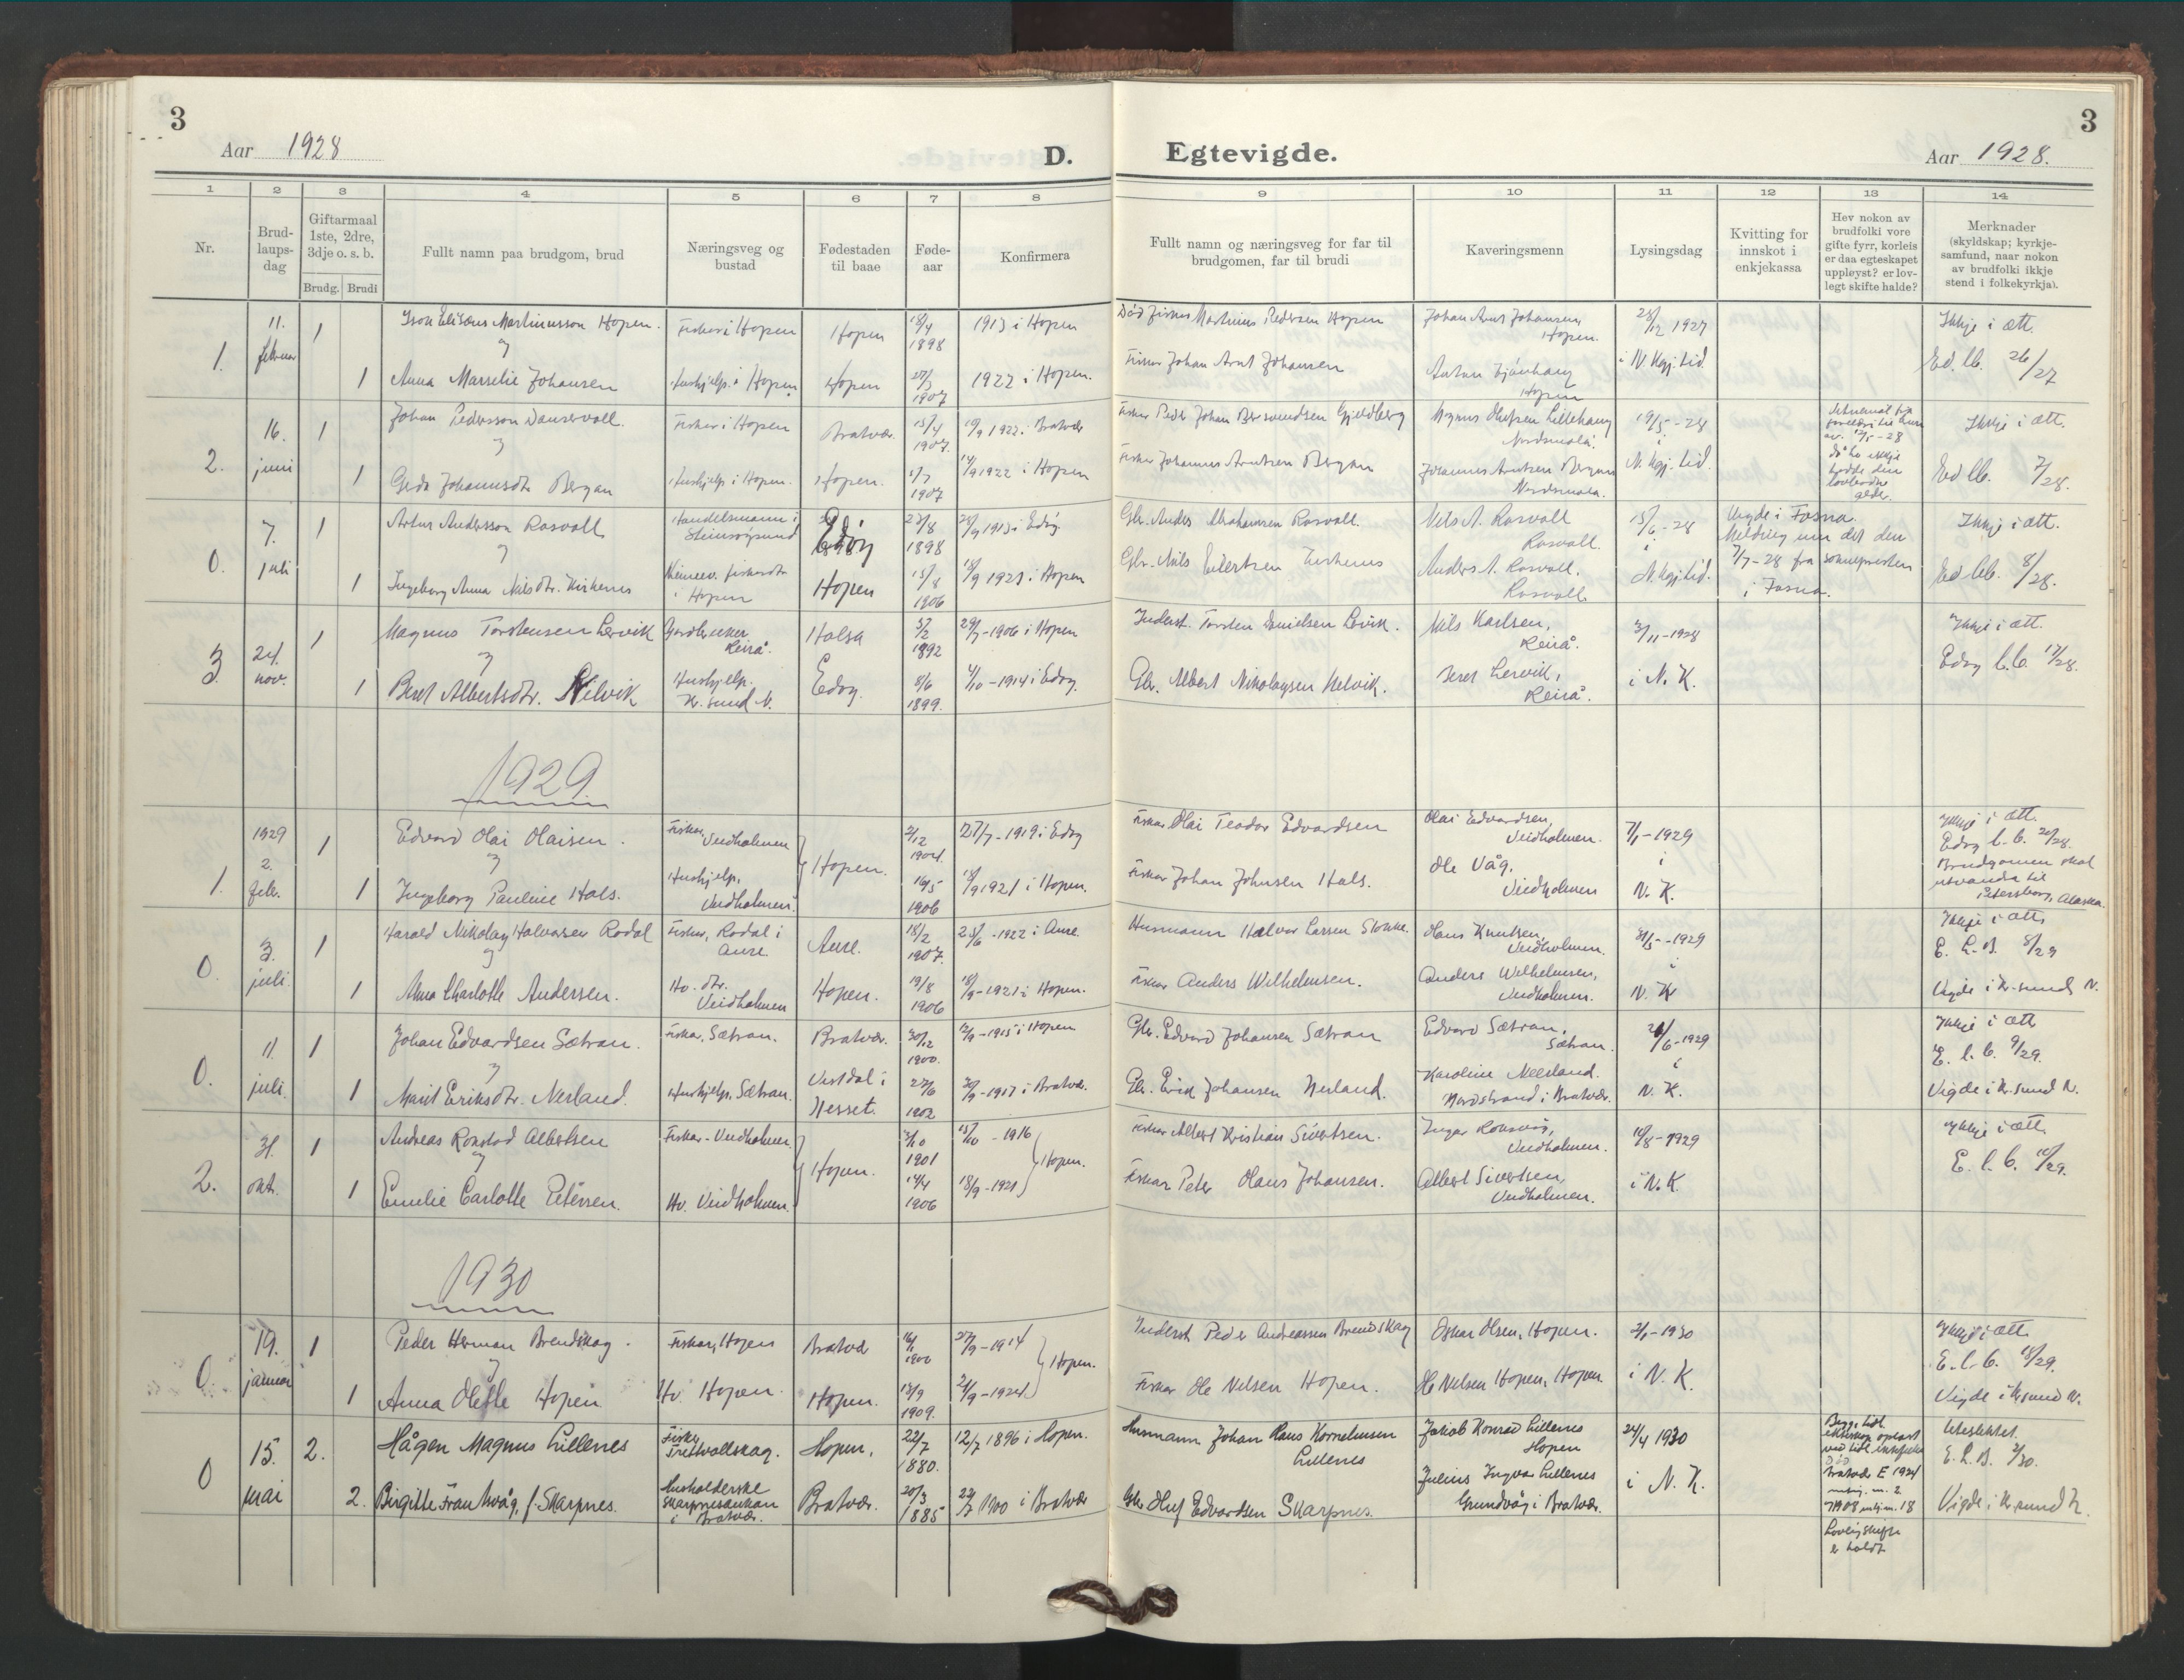 3
Aar 1928
D.
Egtevigde.
Aar 1928.
3
1 2 3 4 5 6 7 8 9 10 11 12 13 14
Nr.
Brud-
laups-
dag
Giftarmaal
1ste, 2dre,
3dje o. s. b.
Brudg. Brudi
Fullt namn paa brudgom, brud
Næringsveg og
bustad
Fødestaden
til baae
Føde-
aar
Konfirmera
Fullt namn og næringsveg for far til
brudgomen, far til brudi
Kaveringsmenn
Lysingsdag
Kvitting for
innskot i
enkjekassa
Hev nokon av
brudfolki vore
gifte fyrr, korleis
er daa egteskapet
uppløyst? er lov-
legt skifte halde?
Merknader
(skyldskap; kyrkje-
samfund, naar nokon
av brudfolki ikkje
stend i folkekyrkja).
1.
11.
februar
1
Martinusson Hopen.
Fisker i Hopen
Hopen
18/4
1898
1913 i Hopen
Død fisker Martinus Pedersen Hopen
Johan Arnt Johansen,
Hopen.
28/12 1927
Ikkje i ætt.
og
1
Anna Marselie Johansen
Hushjelp. i Hopen
Hopen
27/3
1907
1922 i Hopen.
Fisker Johan Arnt Johansen
Anton
Hopen
i N. Kgj. tid.
Ed. lb. 26/27
2.
16.
juni
1
Johan Pedersson
Fisker i Hopen
Bratvær
15/4
1907.
1922 i Bratvær
Fisker Peder Johan
Lillehaug
Nordsmøla.
19/5-28
i
Ikkje i ætt.
og
1
Gerda Johannesdtr. Bergan
Hushjelp i Hopen.
Hopen.
1/7
1907
1922 i Hopen
Fisker Johannes Arntsen Bergan
Johannes Arntsen Bergan
Nordsmøla.
N. Kgj. tid.
Ed lb. 7/28.
0.
7.
juli
1
Artur Andersson Rosvoll
Handelsmann i
Steinsøysund
Edøy
23/8
1898
1913 i Edøy.
Gbr. Anders Rosvoll.
Nils A. Rosvoll
Rosvoll.
15/6-28
i
Vigde i Fosna.
Melding um det den
7/7-28 fra soknepresten
i Fosna.
Ikkje i ætt.
og
1
Ingeborg Anna Nilsdtr. Kirknes
i Hopen
Hopen
15/8
1906
18/9 1921 i Hopen
Gbr. Nils Eilertsen Kirknes
Anders A. Rosvoll.
Rosvoll
N. kgj. tid.
Ed lb. 8/28.
3.
24.
nov.
1
Magnus Torstensen Lervik
Gardbruker
Reirå.
Halsa
5/2
1892
29/7-1906 i Hopen
Inderst. Torsten
Nils Karlsen,
Reirå.
3/11-1928
Ikkje i ætt.
og
1
Beret Albertsdtr.
Hushjelp.
Kr. sund N.
Edøy.
8/6
1899.
4/10-1914 i Edøy.
Gbr. Albert Nikolaysen
Beret Lervik,
Reirå.
i N. K.
Edøy l.b. 17/28.
1929
1.
1929
2.
feb.
1
Edvard Olai Olaisen.
Fiskar,
Veidholmen
Hopen.
2/12
1904.
27/7-1919 i Edøy
Fiskar Olai Teodor Edvardsen
Olai Edvardsen,
Veidholmen.
7/1-1929
Ikkje i ætt.
Edøy l.b. 20/28.
Brudgomen skal
utvandra til
Petersborg, Alaska.
og
1
Ingeborg Pauline Hals.
Hushjelp,
Veidholmen.
16/5
1906
18/9 1921 i Hopen.
Fiskar Johan Johnsen Hals.
Ole Våg,
Veidholmen
i
N. K.
0.
3.
juli
1
Harald Nikolay Halvorsen Rodal
Fisker, Rodal i
Aure.
Aure.
18/2
1907.
25/6-1922 i Aure.
Husmann Halvor Larsen
Hans Knutsen,
Veidholmen.
31/5-1929
Ikkje i ætt.
E. L. B. 8/29
og
1
Anna Charlotte Andersen.
Hv. dtr.
Veidholmen
Hopen.
19/8
1906
18/9-1921 i Hopen.
Fiskar Anders Wilhelmsen.
Anders Wilhelmsen,
Veidholmen.
i
N. K
Vigde i Kr.sund N.
0.
11.
juli.
1
Johan Edvardsen Sætran.
Fiskar, Sætran.
Bratvær.
30/12
1900.
12/9-1915 i Hopen
Gbr. Edvard Johansen Sætran
Edvard Sætran,
Sætran.
21/6-1929
Ikkje i ætt
E. l. b. 9/29.
og
1
Marit Eriksdtr. Nerland.
Hushjelp, Sætran.
Vistdal i
Nesset.
27/6
1902
30/9-1917 i Bratvær.
Gbr. Erik Johansen Nerland.
Karoline Neerland.
Nordstrand i Bratvær.
i
N. K.
Vigde i Kr. sund N.
2.
31.
okt.
1
Andreas Albertsen
Fiskar-Veidholmen
Hopen.
3/10
1901
15/10-1916
Hopen.
Fiskar Albert Kristian Sivertsen.
Ingar
Veidholmen.
10/8-1929
Ikkje i ætt.
og
1
Emelie Carlotte Petersen.
Hv. Veidholmen.
14/4
1906
18/9-1921
Fiskar Peter Olaus Johansen.
Albert Sivertsen,
Veidholmen.
i N. K.
E. l. b. 10/29.
1930
0.
19.
januar
1
Peder Herman Brendskag.
Fiskar, Hopen
Bratvær
16/1
1900
27/9-1914
Hopen.
Inderst Peder Andreassen Brendskag
Oskar Olsen, Hopen.
2/1-1930
Ikkje i ætt.
E. l. b. 18/29.
og
1
Anna Olefle Hopen
Hv. Hopen.
Hopen.
13/9
1909.
21/9-1924
Fiskar Ole Nilsen Hopen.
Ole Nilsen Hopen, Hopen.
i N. K.
Vigde i Kr.sund N.
0
15.
mai
2.
Hågen Magnus Lillenes
Fisker
Trettvollskag.
Hopen.
22/7
1880.
12/7 1896 i Hopen.
Husmann Johan Hans Kornelinsen
Lillenes
Jakob Konrad Lillenes
Hopen
24/4 1930
Begge tidl.
død
Bratvær E 1924
1908 m. 18
Lovlig skifte
er holdt
Ubeslektet.
E. L. B. 2/30.
2.
Birgitte Fran f. Skarpnes.
Husholderske
i Bratvær.
Bratvær.
20/3
1885
1900 i Bratvær
Gbr Oluf Edvardsen Skarpnes.
Julius Ingvar Lillenes
Grundvåg i Bratvær.
i N. K.
Vigde i Kr.sund N.